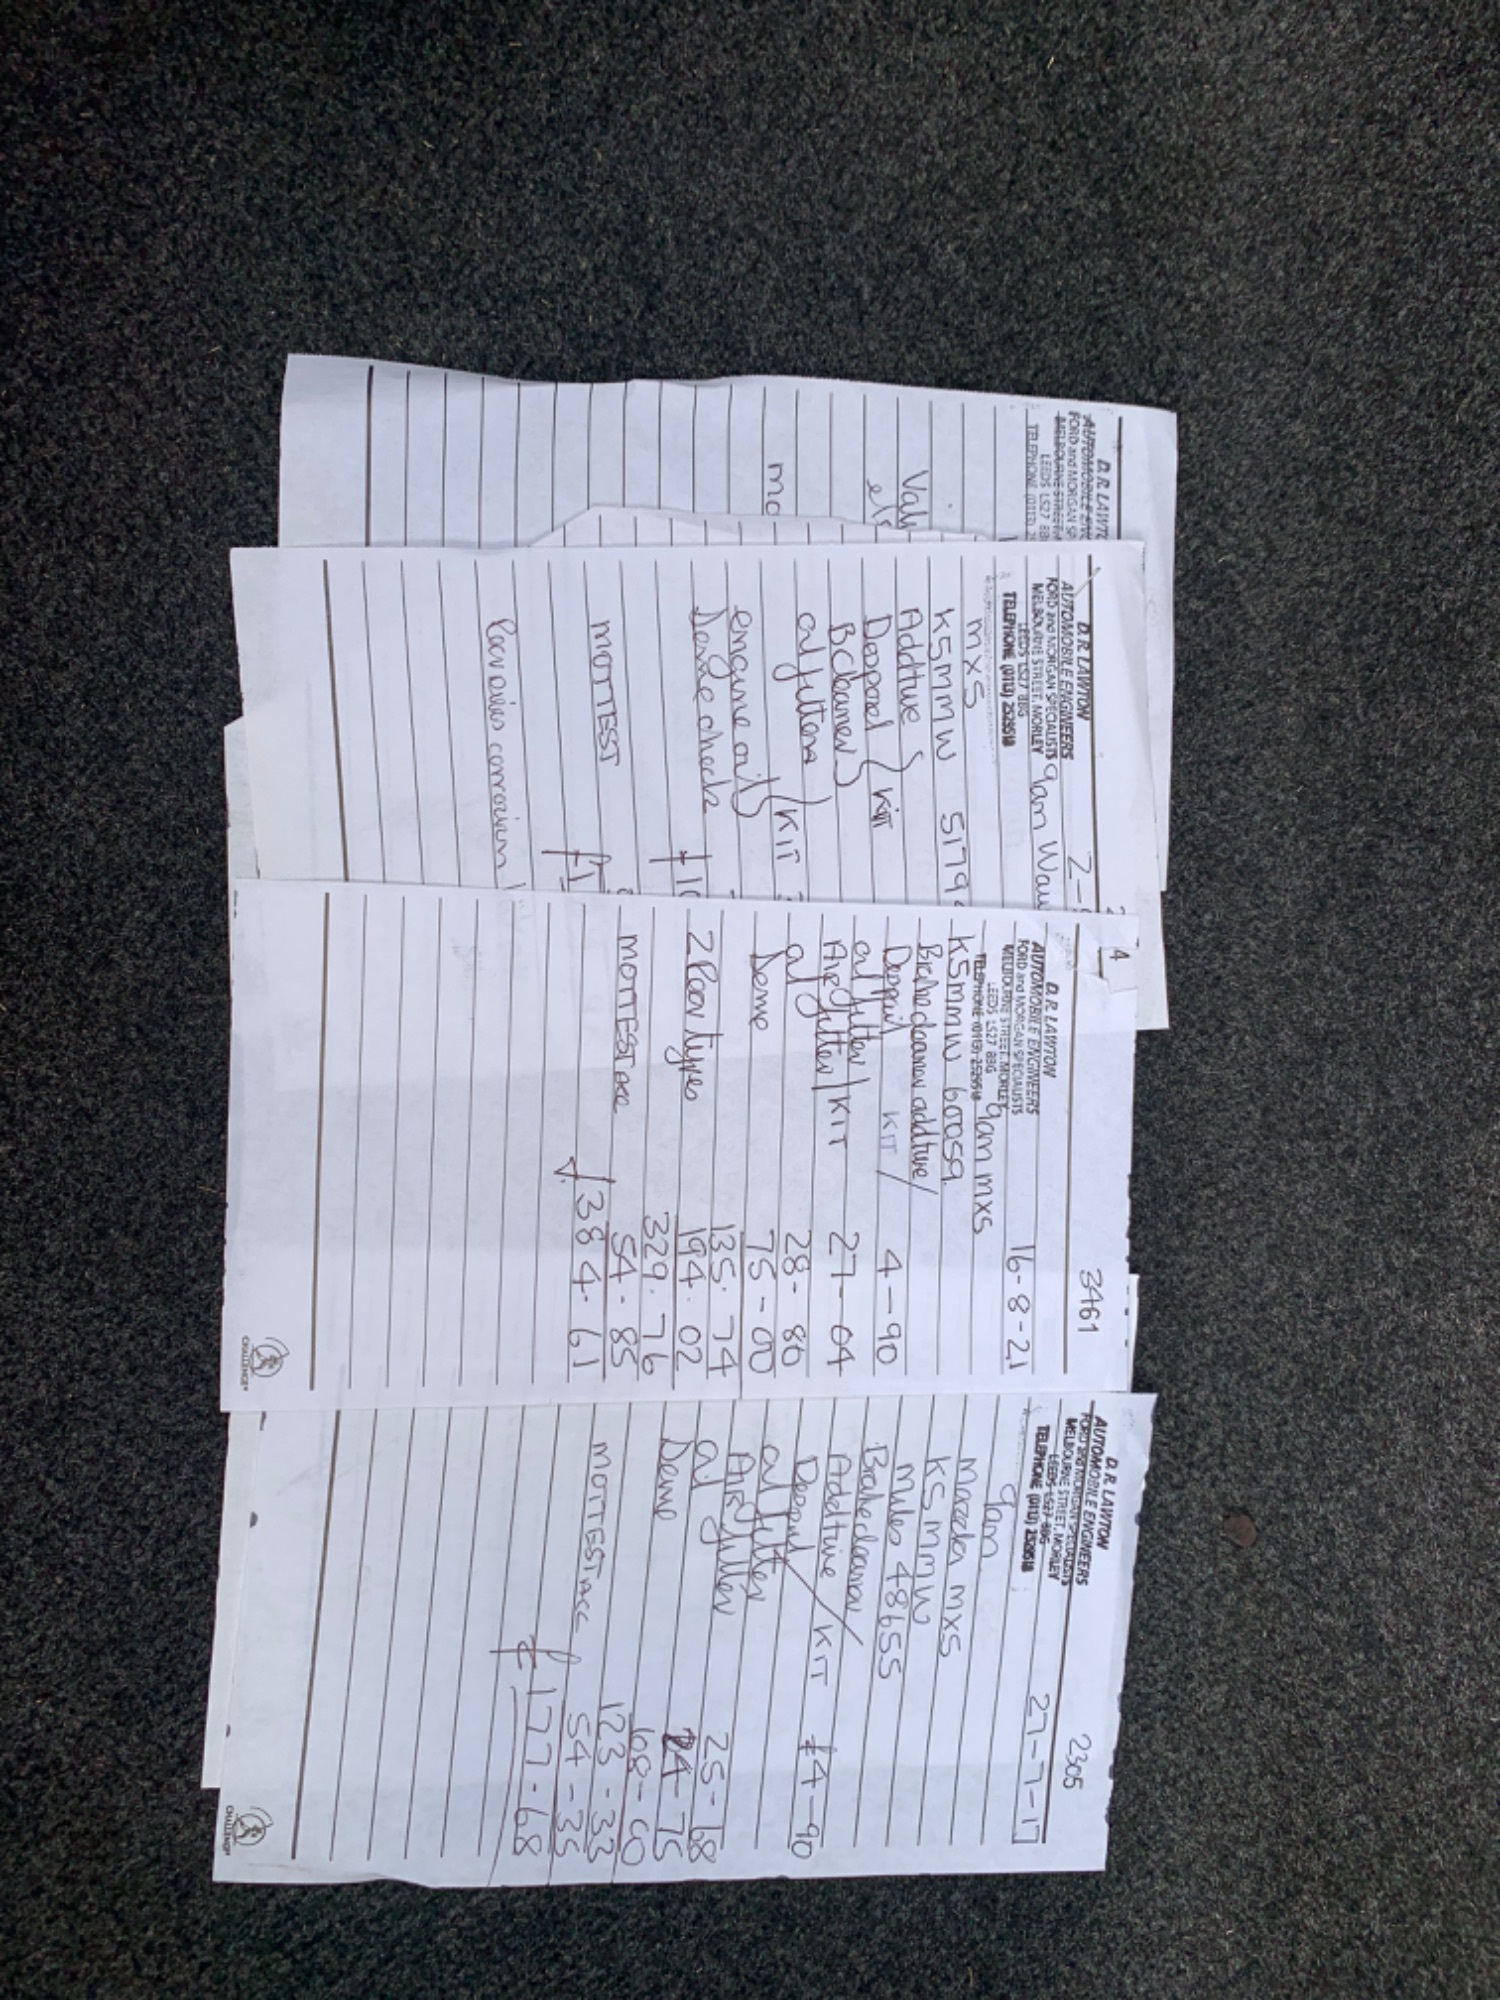 D. R. LAWT
AUTOMOBILE EN
FORD and MORGAN SP
MELBOURNE STREET
LEEDS LS27 8B
TELEPHONE (0113) 25
Val
els
mo
D. R. LAWTON
AUTOMOBILE ENGINEERS
FORD and MORGAN SPECIALISTS
MELBOURNE STREET, MORLEY
LEEDS LS27 8BG
TELEPHONE (0113) 2529518
2-
9am
mx5
K5mmw 5179
Additive
KIT
Bcleaner
oil filters
engine oil KIT
check
MOTTEST
£1
corrosion
4
3461
D. R. LAWTON
AUTOMOBILE ENGINEERS
FORD and MORGAN SPECIALISTS
MELBOURNE STREET, MORLEY
LEEDS LS27 8BG
TELEPHONE (0113) 2529518
16-8-21
9am mx5
K5mmw 60059.
additive
KIT 4-90
oil filter
Air filter KIT 27-04
oil 28-80
75-00
135.74
2 Rear tyres 194.02
329.76
MOTTEST 54.85
£384.61
CHALLENGE
2305
D. R. LAWTON
AUTOMOBILE ENGINEERS
FORD and MORGAN SPECIALISTS
MELBOURNE STREET, MORLEY
LEEDS LS27 8BG
TELEPHONE (0113) 2529518
27-7-17
9am
Mazda mx5
K5mmw
miles 48655
Brakecleaner
Additive
KIT £4-90
oil filter
Air filter 25-68
oil 24-75
68-00
123-33
MOTTEST 54-35
£177-68
CHALLENGE